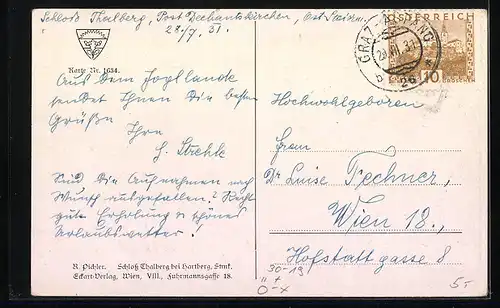 Schloß Thalberg, Post Dechantskirchen, Ost-Steierm.
28/7. 31.
Karte Nr. 1634.
Aus dem Jogllande
sendet Ihnen die besten
Grüße
Ihre
G. Strehle
Sind die Aufnahmen nach
Wunsch ausgefallen? Recht
gute Erholung u schönes
Urlaubswetter!
R. Pichler. Schloß Thalberg bei Hartberg, Stmk.
Eckart-Verlag, Wien, VIII., Fuhrmannsgasse 18.
ÖSTERREICH
10
GRAZ
VII. 31
26
Hochwohlgeboren
Frau
Dr Luise Fechner,
Wien 18.,
Hofstattgasse 8
30-19
5-